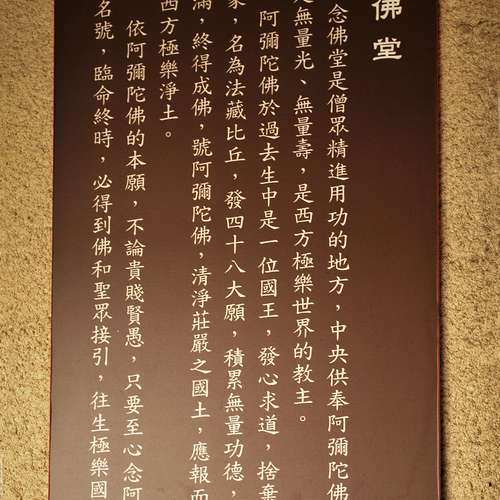 佛堂
念佛堂是僧眾精進用功的地方，中央供奉阿彌陀佛
是無量光、無量壽，是西方極樂世界的教主。
阿彌陀佛於過去生中是一位國王，發心求道，捨棄
家，名為法藏比丘，發四十八大願，積累無量功德，
滿，終得成佛，號阿彌陀佛，清淨莊嚴之國土，應報而
西方極樂淨土。
依阿彌陀佛的本願，不論貴賤賢愚，只要至心念阿
名號，臨命終時，必得到佛和聖眾接引，往生極樂國